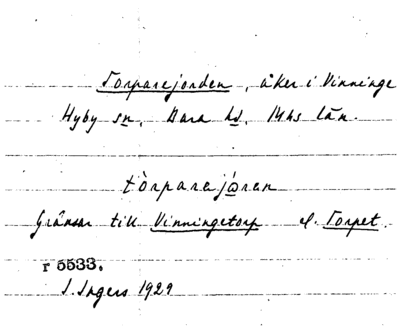 Torparejorden, åker i Vinninge
Hyby sn, Bara hd, Mhs län.
tòrparejo̱ren
Gränsar till Vinningetorp el. Torpet.
r 5533.
I. Ingers 1929